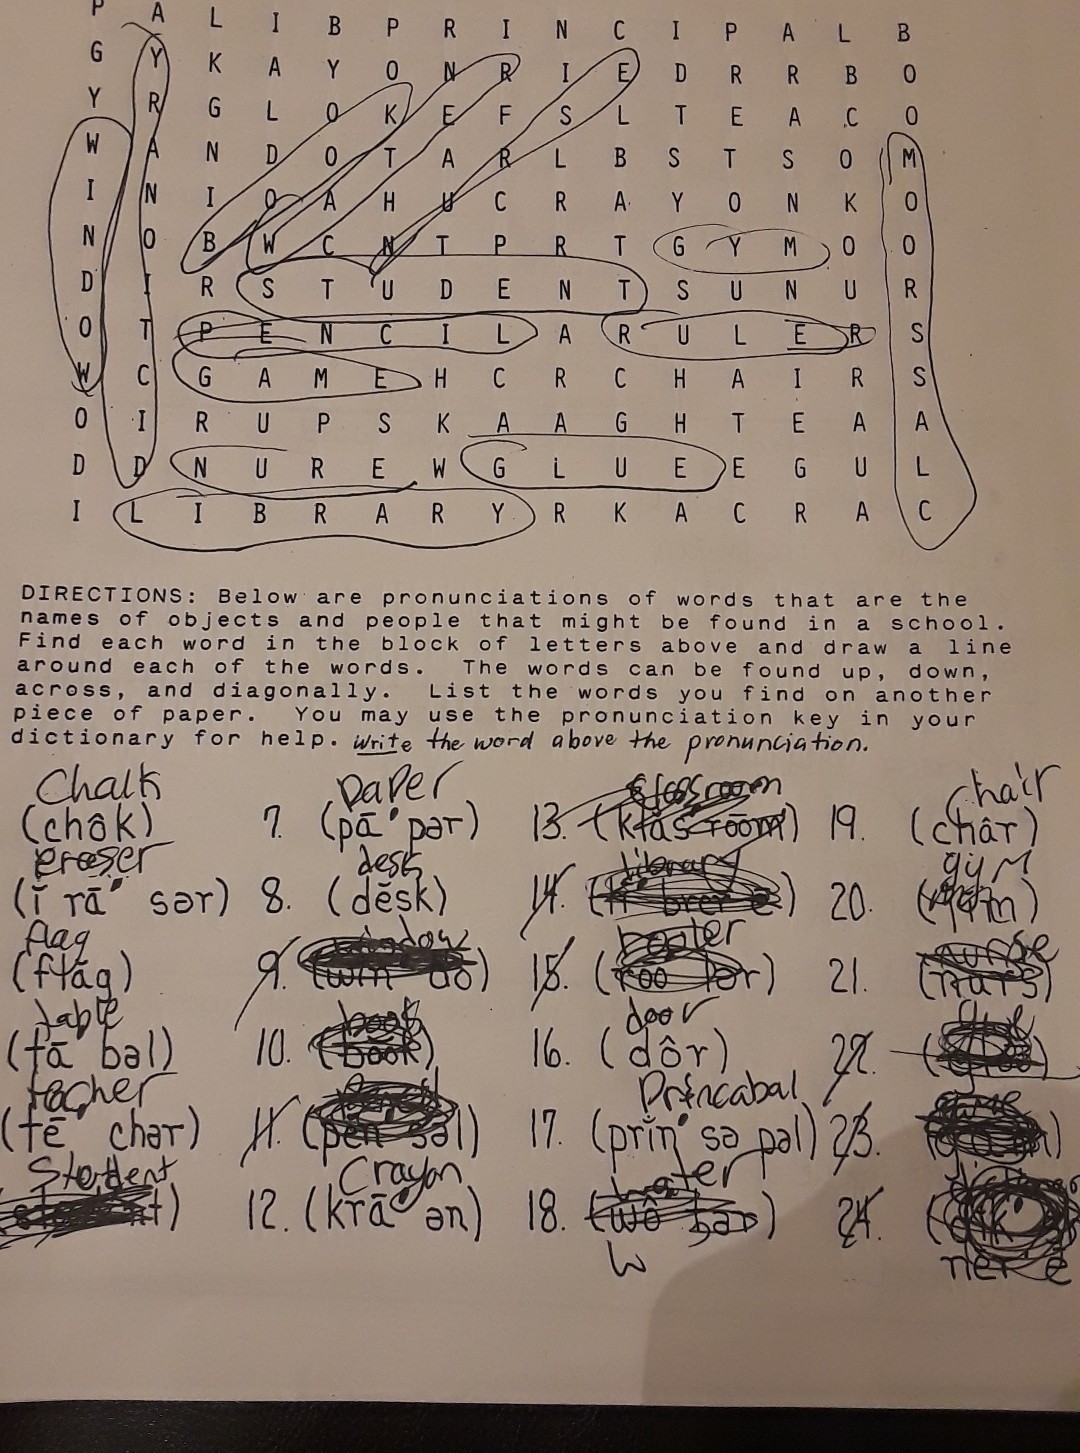 P A L I B P R I N C I P A L B
G Y K A Y O N R I E D R R B O
Y R G L O K E F S L T E A C O
W A N D O T A R L B S T S O M
I N I O A H U C R A Y O N K O
N O B W C N T P R T G Y M O O
D I R S T U D E N T S U N U R
O T P E N C I L A R U L E R S
W C G A M E H C R C H A I R S
O I R U P S K A A G H T E A A
D D N U R E W G L U E E G U L
I L I B R A R Y R K A C R A C
DIRECTIONS: Below are pronunciations of words that are the
names of objects and people that might be found in a school.
Find each word in the block of letters above and draw a line
around each of the words. The words can be found up, down,
across, and diagonally. List the words you find on another
piece of paper. You may use the pronunciation key in your
dictionary for help. Write the word above the pronunciation.
Chalk paper classroom chair
(chôk) 7. (pā′ pər) 13. (klas′ rōōm) 19. (châr)
eraser desk library gym
(ĭ rā′ sər) 8. (dĕsk) 14. 20.
flag window rooler nurse
(flăg) 9. (wĭn′ dō) 15. (rōō lər) 21. (nûrs)
table book door glue
(tā′ bəl) 10. (bŏŏk) 16. (dôr) 22.
tacher pencil Princabal
(tē′ chər) 11. (pĕn′ səl) 17. (prĭn′ sə pəl) 23.
Student Crayon water
12. (krā′ ən) 18. (wô′ tər) 24. (dĭk′
W nĕr′ ē